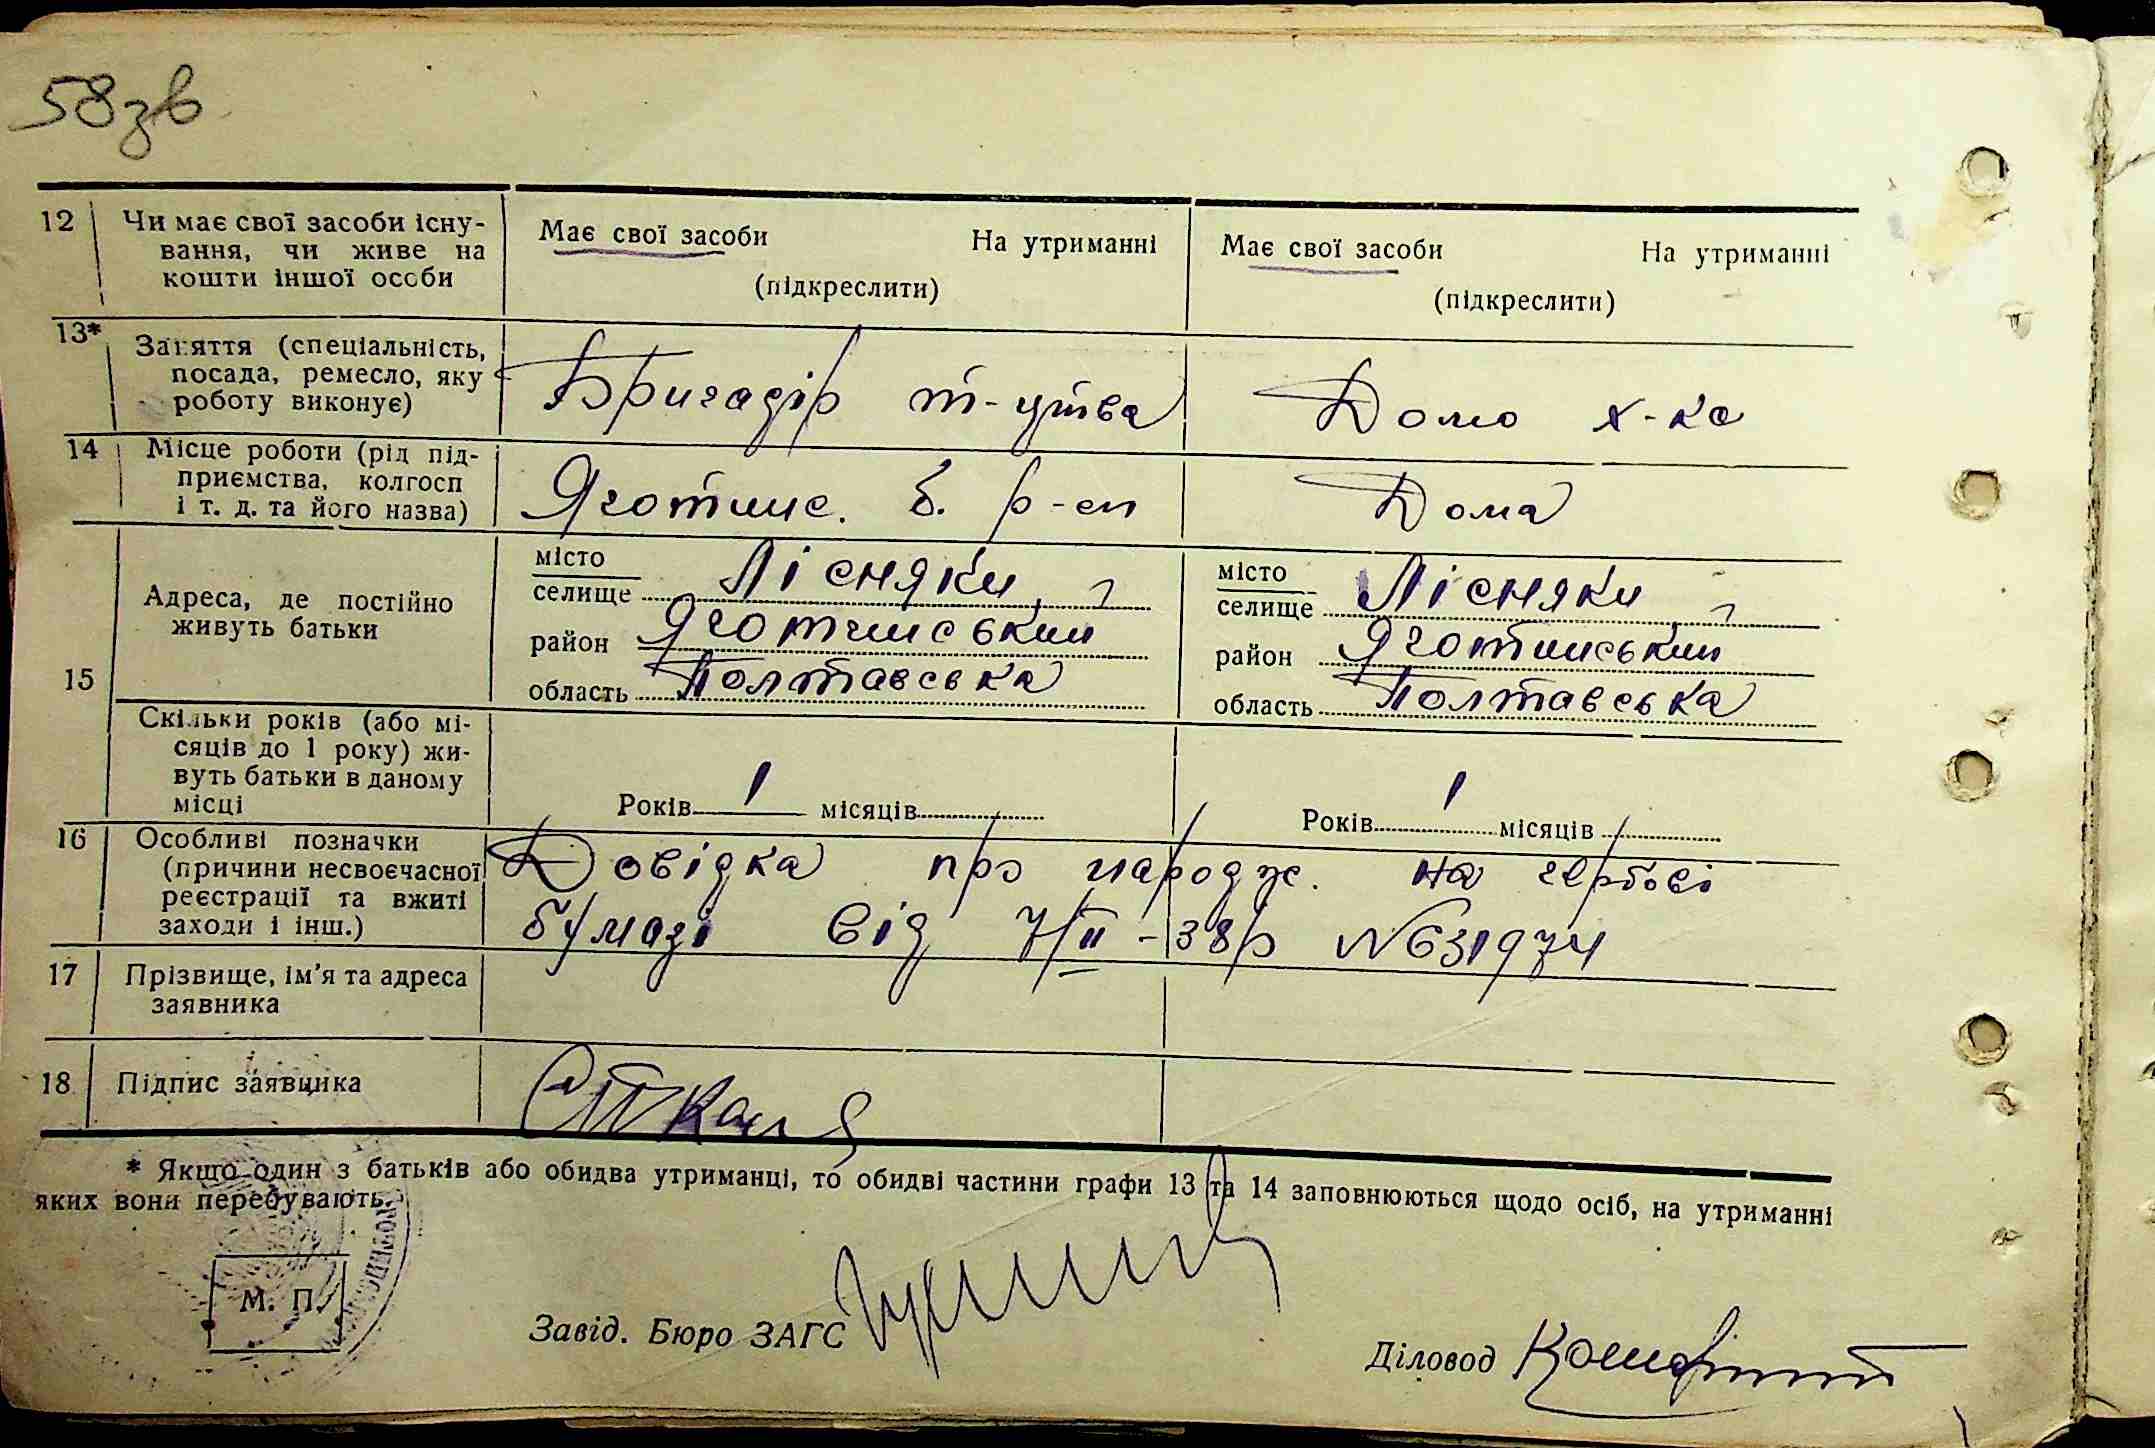 58зв
12 Чи має свої засоби існу- Має свої засоби На утриманні Має свої засоби На утриманні
вання, чи живе на
кошти іншої особи (підкреслити) (підкреслити)
13* Заняття (спеціальність,
посада, ремесло, яку Бригадір т-утва Домо х-ка
роботу виконує)
14 Місце роботи (рід під-
приємства, колгосп Яготинс. б. р-еп Дома
і т. д. та його назва)
15 Адреса, де постійно
живуть батьки
місто
селище Лісняки
район Яготинський
область Полтавська
місто
селище Лісняки
район Яготинський
область Полтавська
Скільки років (або мі-
сяців до 1 року) жи-
вуть батьки в даному
місці Років 1 місяців Років 1 місяців
16 Особливі позначки
(причини несвоєчасної Довідка про народж. на гербові
реєстрації та вжиті
заходи і інш.) бумазі від 7/II-38р №631974
17 Прізвище, ім'я та адреса
заявника
18 Підпис заявника
* Якщо один з батьків або обидва утриманці, то обидві частини графи 13 та 14 заповнюються щодо осіб, на утриманні
яких вони перебувають.
М. П.
Завід. Бюро ЗАГС
Діловод